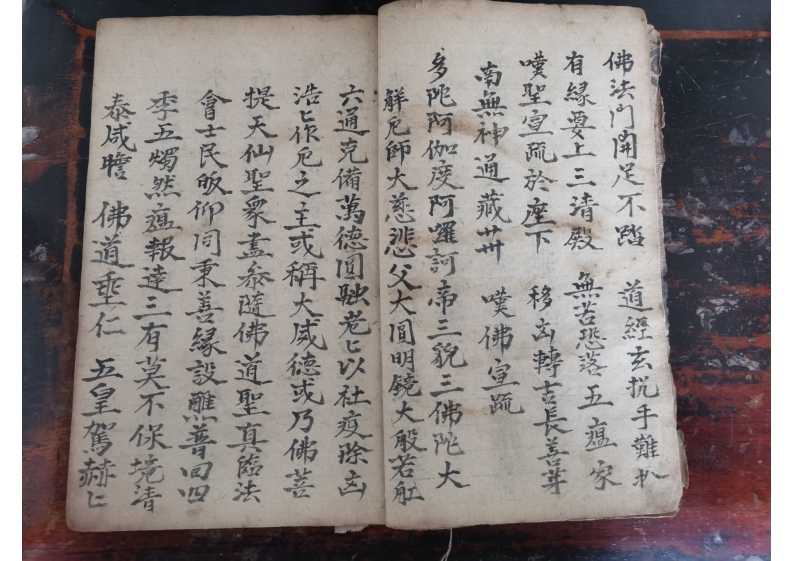 佛法門開足不踏 道經玄抗手難扒
有緣要上三清殿 無苦恐落五瘟家
嘆聖宣疏於座下 移凶轉吉長善芽
南無神通藏卅 嘆佛宣疏
多陀阿伽度阿羅訶帝三貌三佛陀大
解厄師大慈悲父大圓明鏡大般若舡
六通克備萬德圓融老匕以社疫除凶
浩匕作厄之主或稱大威德或乃佛菩
提天仙聖衆盡叅隨佛道聖真臨法
會士民皈仰同秉善緣設醮普回四
季五燭然瘟報達三有莫不保境清
泰咸瞻 佛道垂仁 五皇駕赫匕